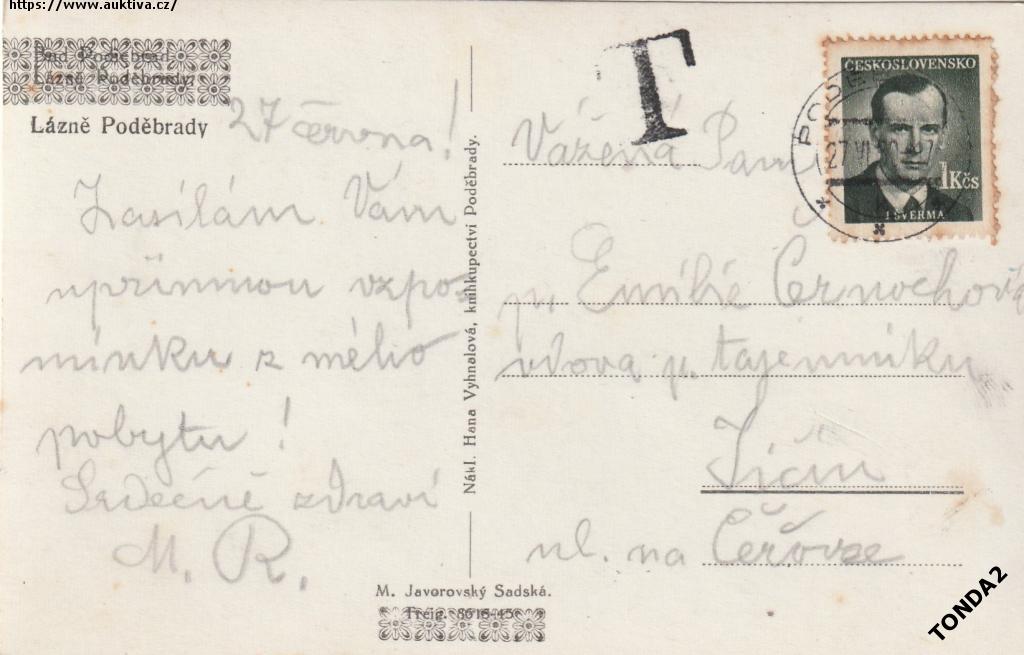 https://www.auktiva.cz/
Bad Podiebrad
Lázně Poděbrady.
Lázně Poděbrady
27 června!
Zasílám Vám
upřímnou vzpo-
mínku z mého
pobytu!
Srdečně zdraví
M. R.
Nákl. Hana Vyhnalová, knihkupectví Poděbrady.
M. Javorovský Sadská.
T
ČESKOSLOVENSKO
1 Kčs
J. ŠVERMA
27 VI
Vážená Paní
p. Emilie Černochová
vdova p. tajemníku
Jičín
ul. na Čeřovce
TONDA2